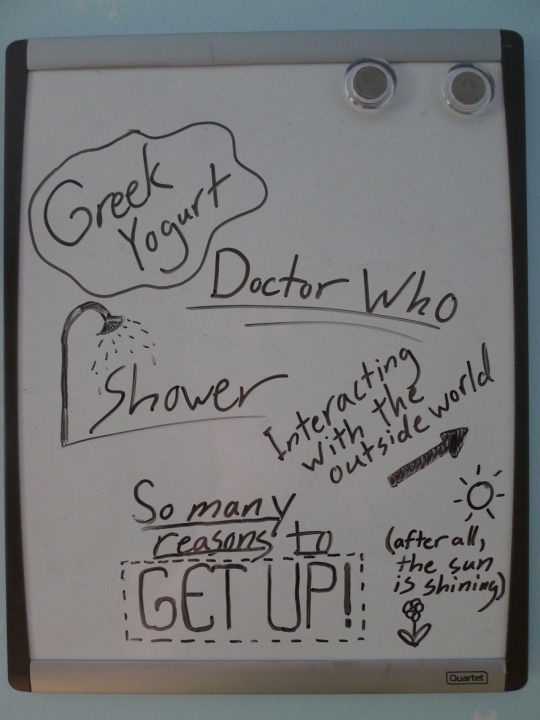 Greek
Yogurt
Doctor Who
Shower
Interacting
with the
outside world
So many
reasons to
GET UP!
(after all,
the sun
is shining)
Quartet